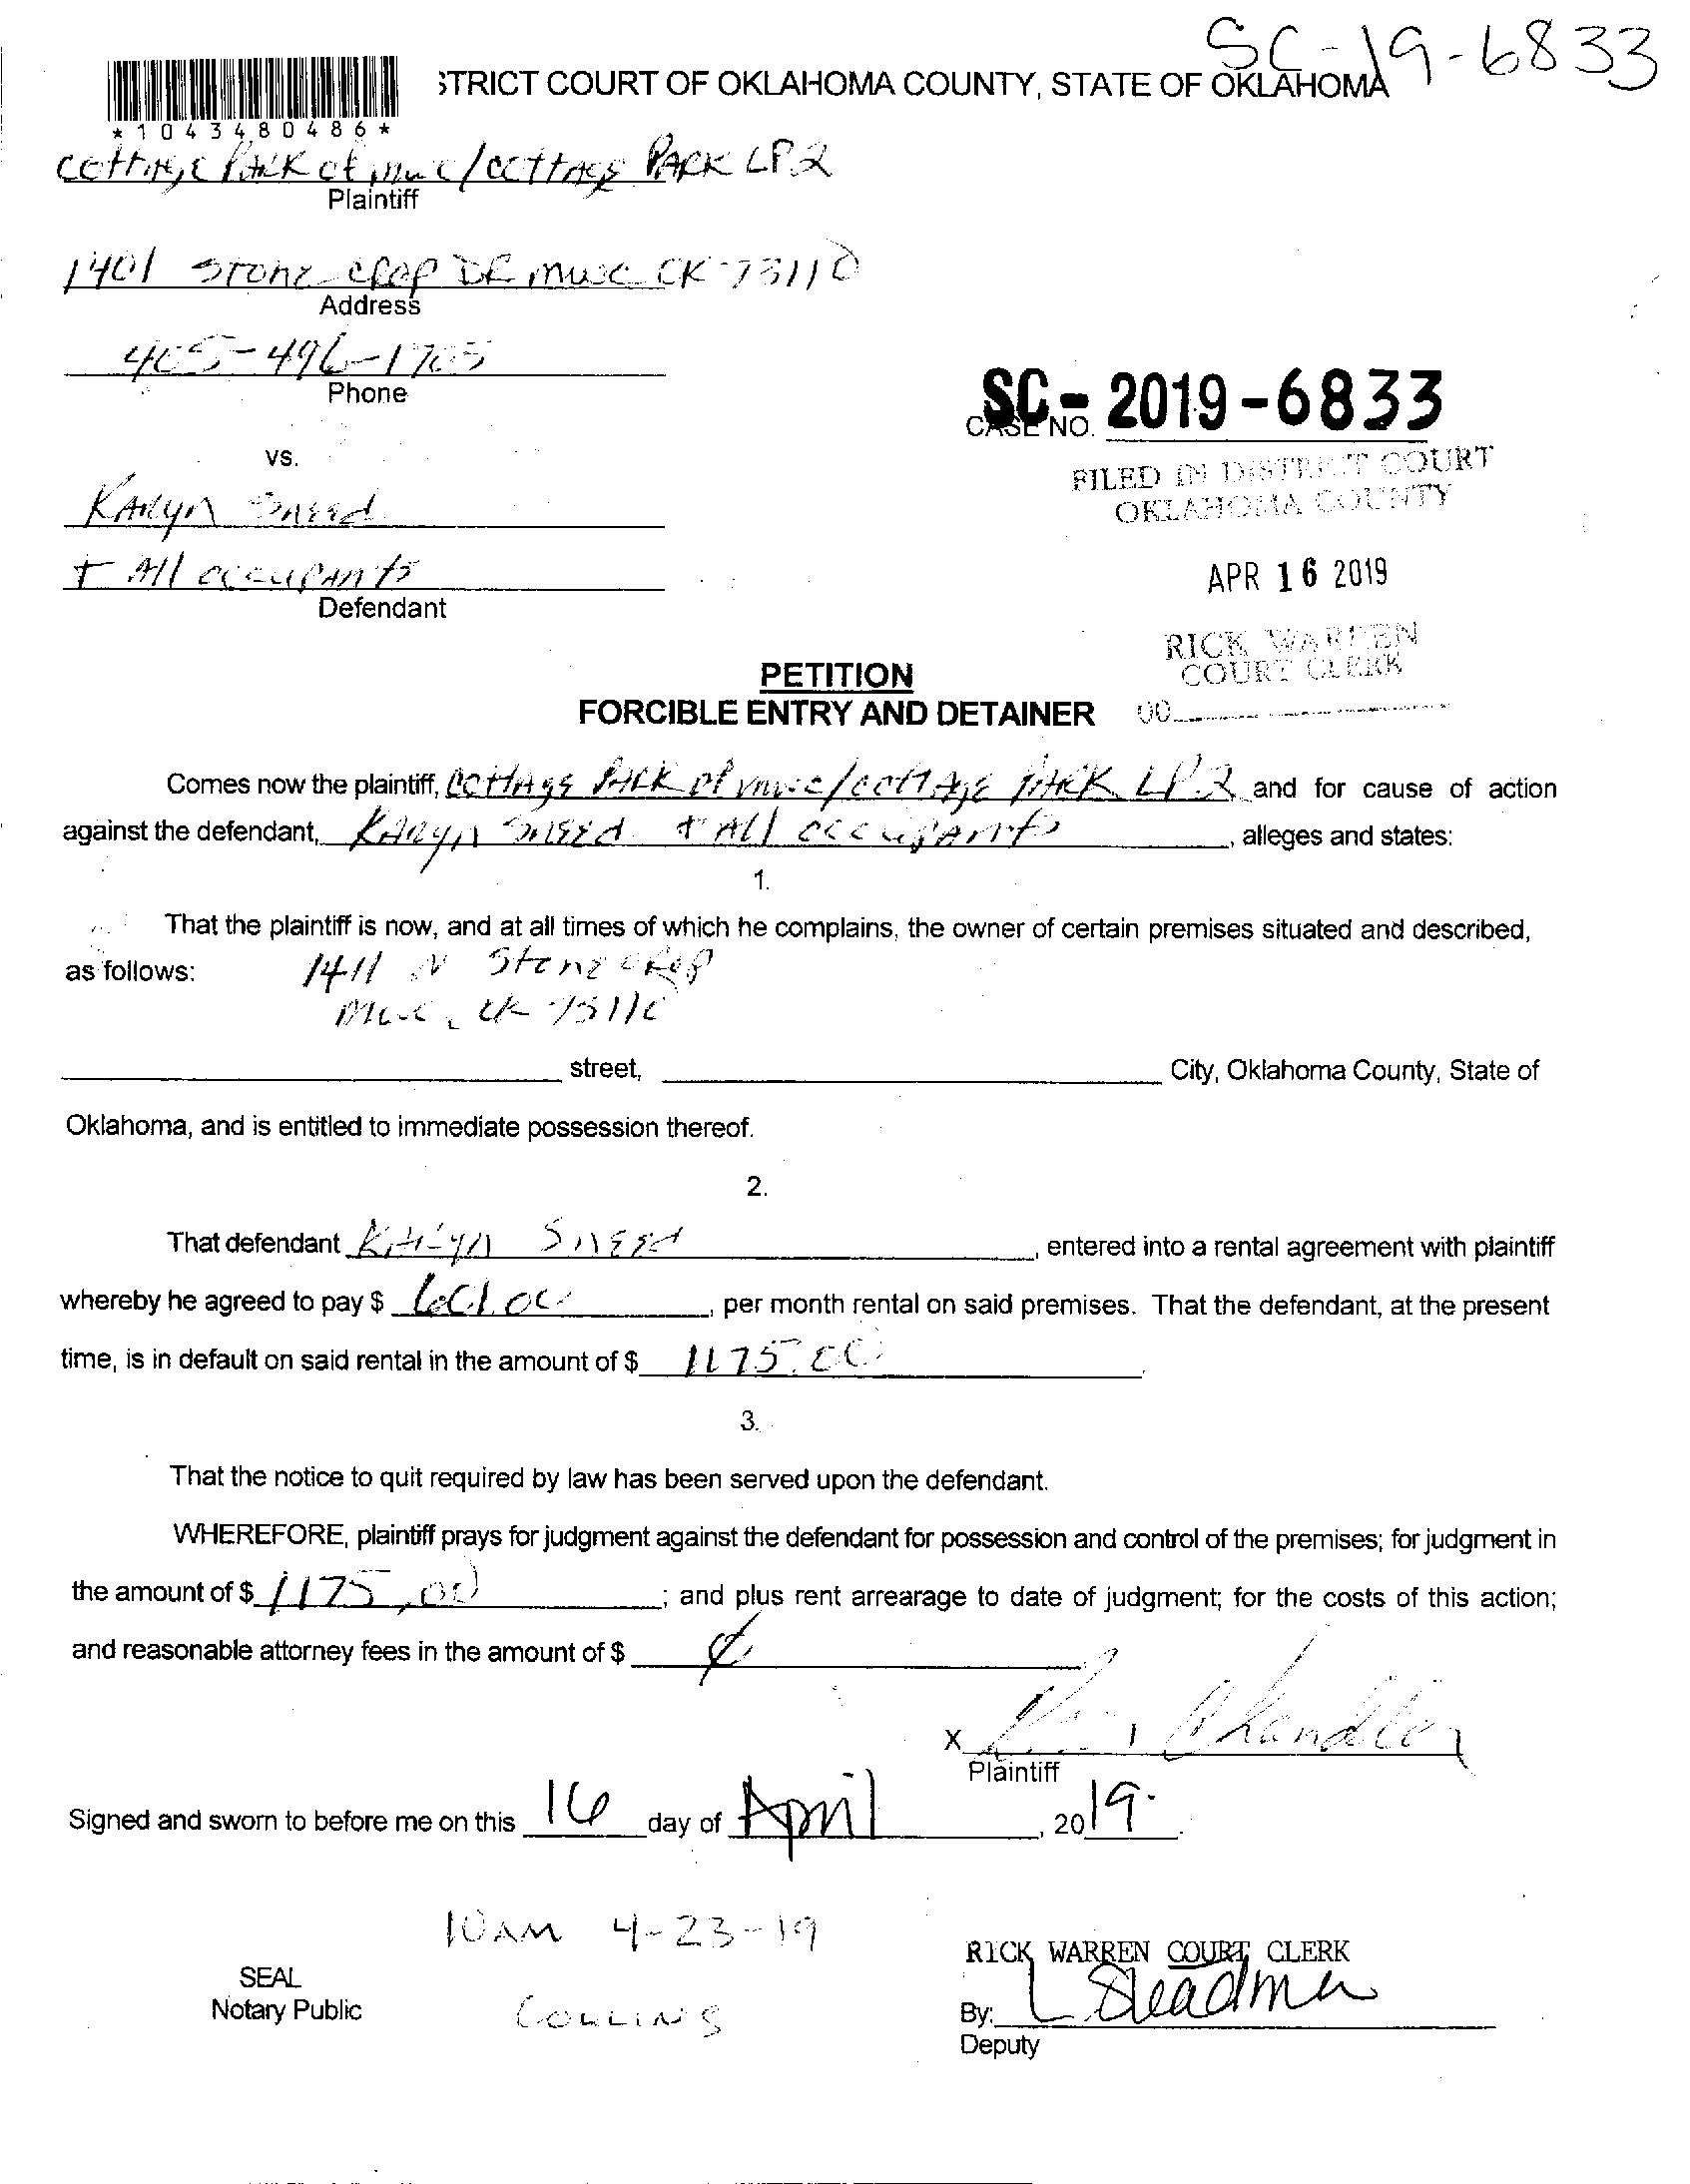 SC-19-6833
STRICT COURT OF OKLAHOMA COUNTY, STATE OF OKLAHOMA
*1043480486*
Cottage Park of mwc/cottage Park LP2
Plaintiff
1401 Stone crop DR mwc OK 73110
Address
405-496-1705
Phone
vs.
SC- 2019-6833
CASE NO.
FILED IN DISTRICT COURT
OKLAHOMA COUNTY
Karyn Sneed
+ All occupants
Defendant
APR 16 2019
RICK WARREN
COURT CLERK
PETITION
FORCIBLE ENTRY AND DETAINER
Comes now the plaintiff, Cottage Park of mwc/cottage Park LP.2 and for cause of action
against the defendant, Karyn Sneed + All occupants, alleges and states:
1.
That the plaintiff is now, and at all times of which he complains, the owner of certain premises situated and described,
as follows: 1411 N Stonecrop
mwc, ok 73110
street, City, Oklahoma County, State of
Oklahoma, and is entitled to immediate possession thereof.
2.
That defendant Karyn Sneed, entered into a rental agreement with plaintiff
whereby he agreed to pay $ , per month rental on said premises. That the defendant, at the present
time, is in default on said rental in the amount of $ 1175.00.
3.
That the notice to quit required by law has been served upon the defendant.
WHEREFORE, plaintiff prays for judgment against the defendant for possession and control of the premises; for judgment in
the amount of $ 1175,00; and plus rent arrearage to date of judgment; for the costs of this action;
and reasonable attorney fees in the amount of $
X Chandler
Plaintiff
Signed and sworn to before me on this 16 day of April, 2019.
10AM 4-23-19
RICK WARREN COURT CLERK
SEAL
Notary Public
Collins
By: L Steadman
Deputy